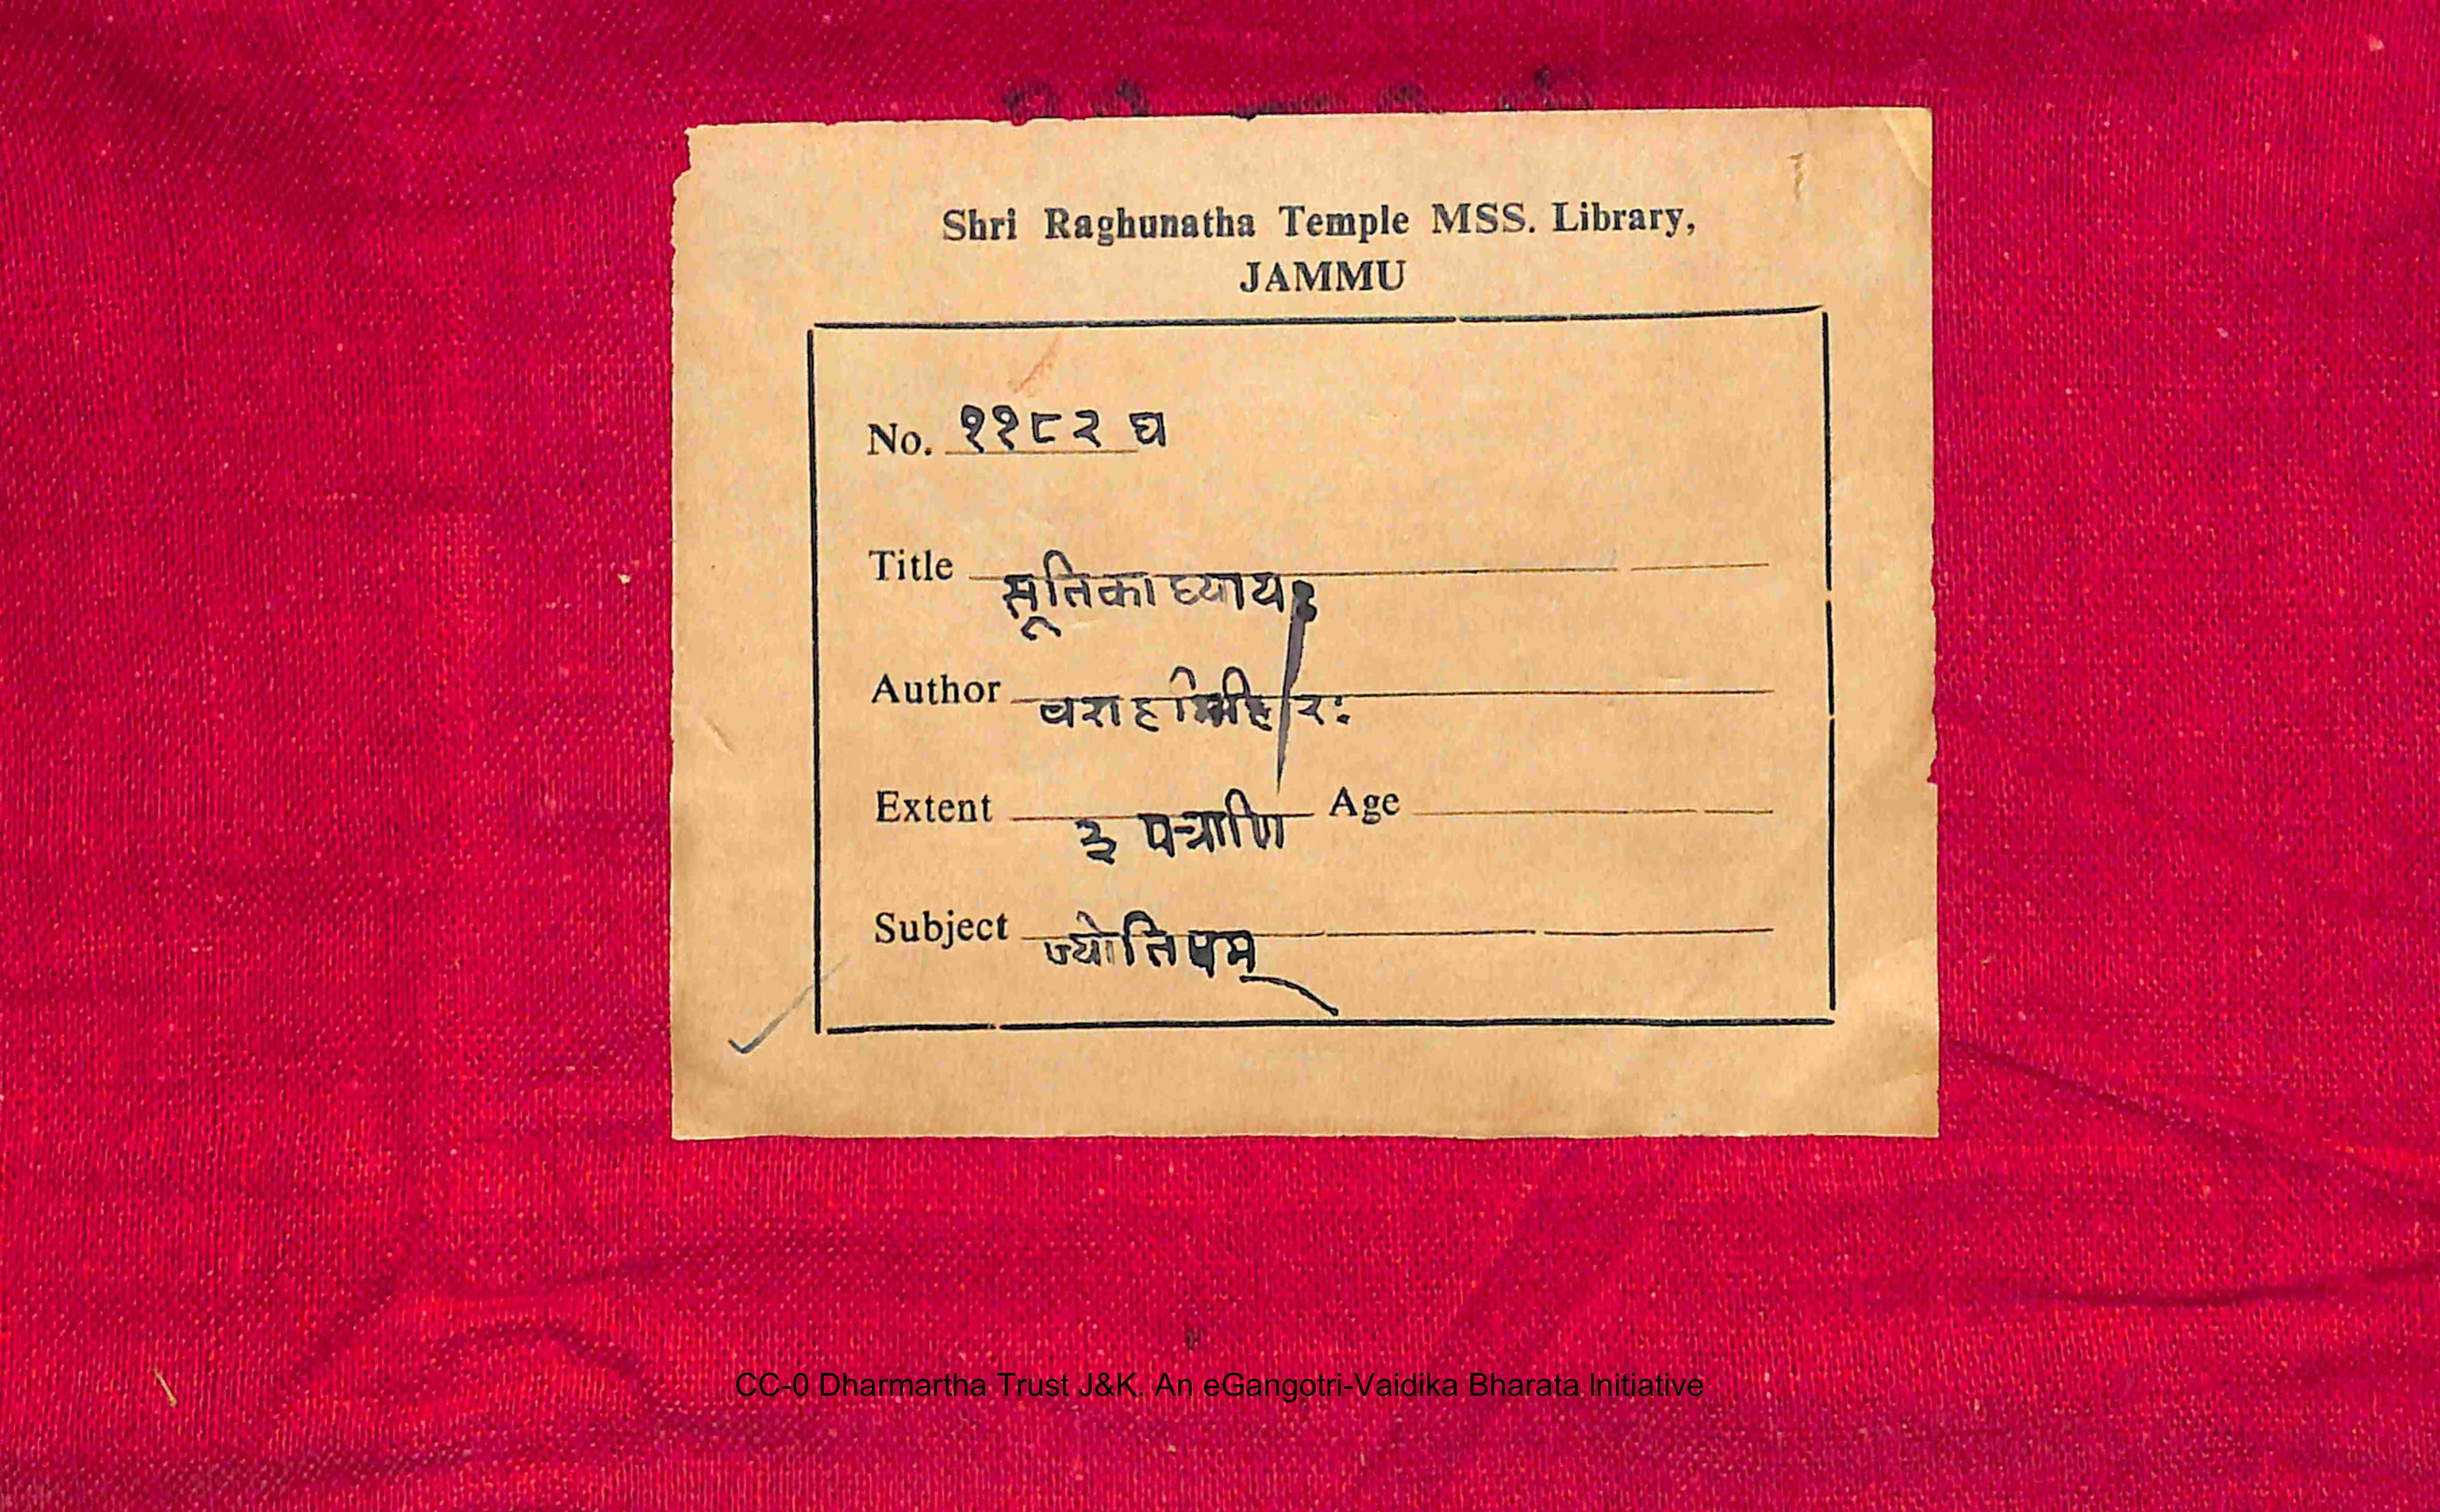 Shri Raghunatha Temple MSS. Library,
JAMMU
No. ११८२ घ
Title सूतिकाध्यायः
Author वराहमिहिरः
Extent ३ पत्राणि Age
Subject ज्योतिषम्
CC-0 Dharmartha Trust J&K. An eGangotri-Vaidika Bharata Initiative